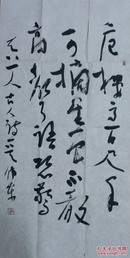 危楼高百尺手
可摘星辰不敢
高声语恐惊
天上人古人诗